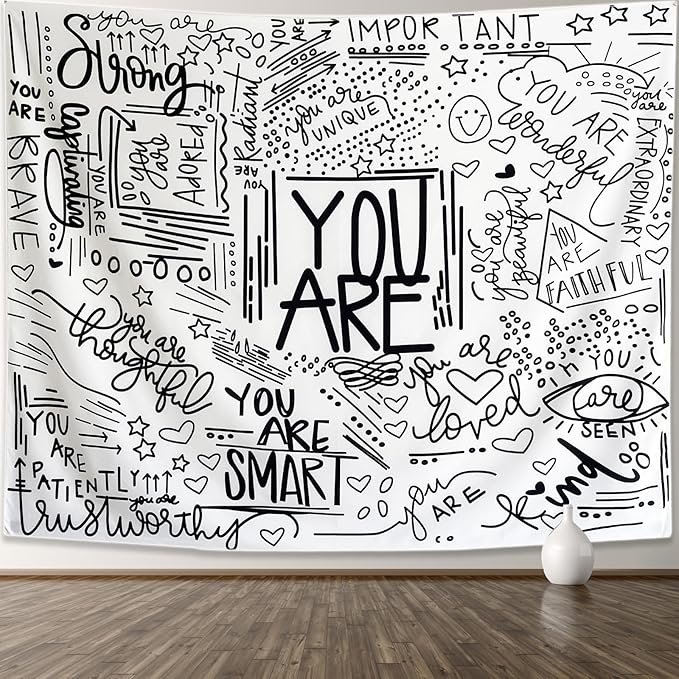 YOU ARE
IMPORTANT
you are
Strong
YOU
ARE
BRAVE
Captivating
YOU ARE
you
are
ADORED
YOU
ARE
Radiant
you are
UNIQUE
YOU ARE
wonderful
you
are
EXTRAORDINARY
YOU
ARE
you are
beautiful
YOU
ARE
FAITHFUL
you are
thoughtful
you are
loved
YOU
are
SEEN
YOU
ARE
SMART
YOU
ARE
PATIENTLY
you are
trustworthy
you
ARE
kind